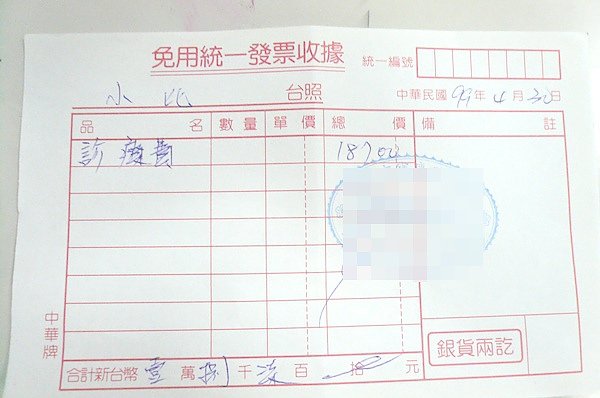 免用統一發票收據
統一編號
小 比 台照 中華民國99年4月30日
品名 數量 單價 總價 備註
診療費 18700
中華牌
銀貨兩訖
合計新台幣壹萬捌千柒百拾元